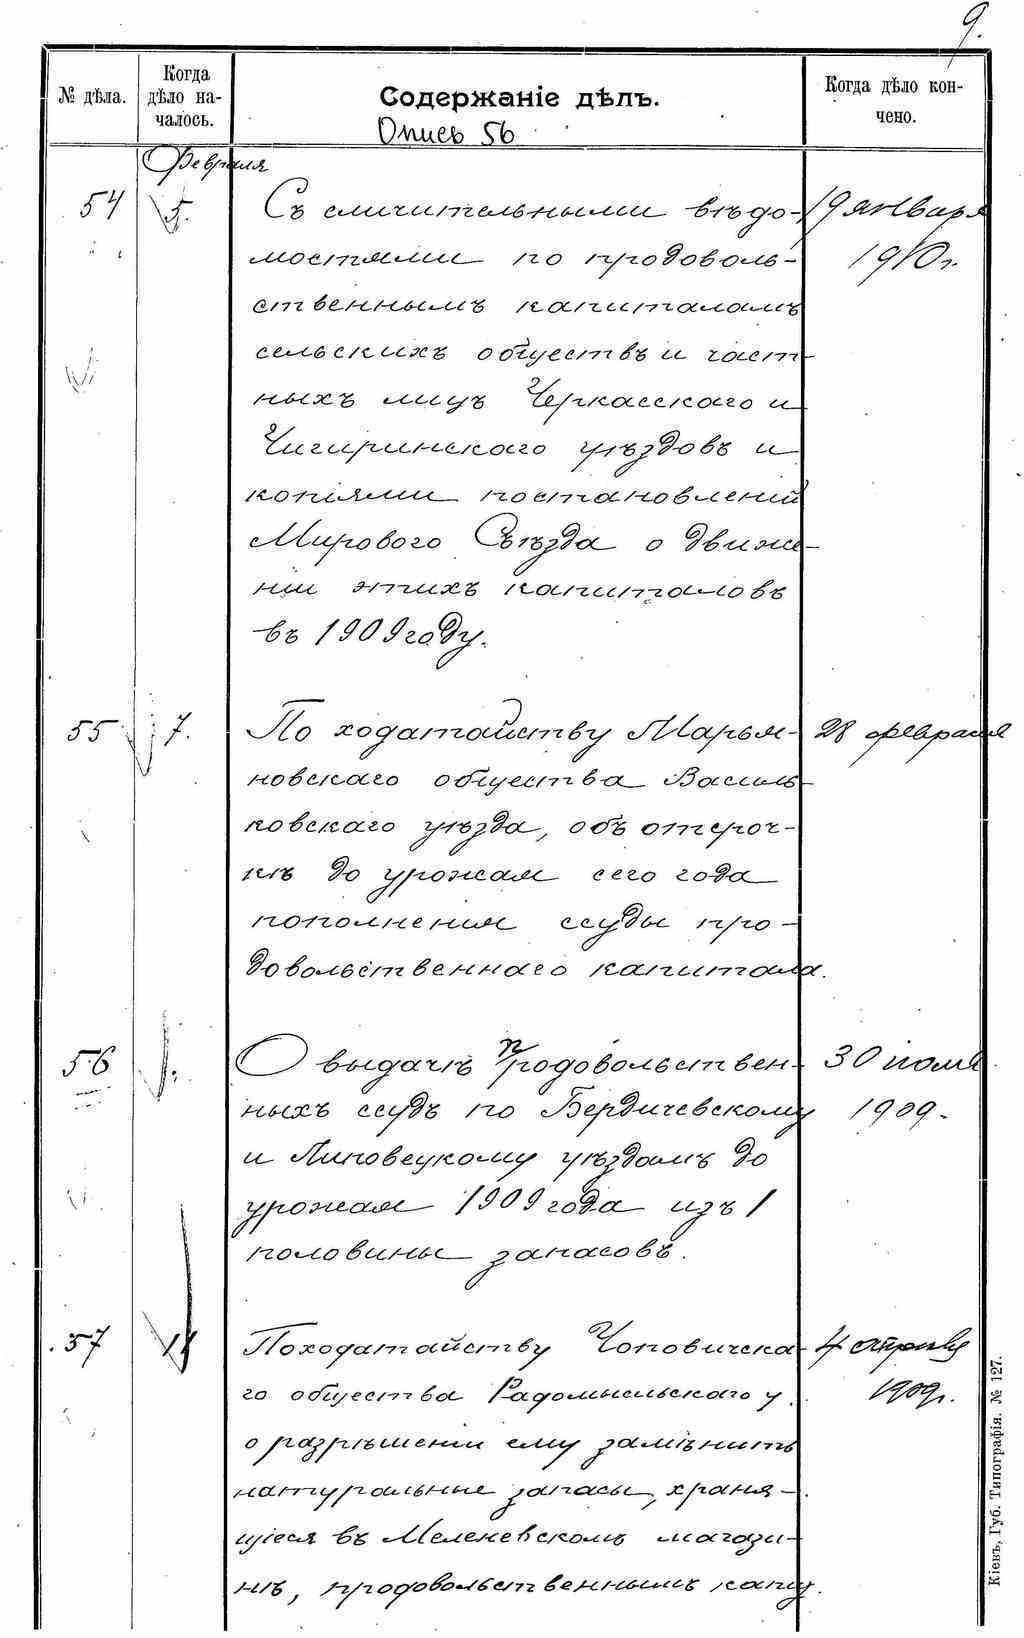 9.
№ дѣла.
Когда дѣло на-
чалось.
Содержаніе дѣлъ.
Опись 56
Когда дѣло кон-
чено.
Февраля
54 5. Съ сличительными вѣдо- 19 января
мостями по продоволь- 1910 г.
ственнымъ капиталамъ
сельскихъ обществъ и част-
ныхъ лицъ Черкасскаго и
Чигиринскаго уѣздовъ и
копіями постановленій
Мирового Съѣзда о движе-
ніи этихъ капиталовъ
въ 1909 году.
55 7. По ходатайству Марья- 28 февраля
новскаго общества Василь-
ковскаго уѣзда, объ отсроч-
кѣ до урожая сего года
пополненія ссуды про-
довольственнаго капитала.
56 О выдачѣ продовольствен- 30 іюля
ныхъ ссудъ по Бердичевскому 1909.
и Липовецкому уѣздамъ до
урожая 1909 года изъ 1
половины запасовъ.
57 11 По ходатайству Чоповичска- 4 апрѣля
го общества Радомысльскаго у. 1909 г.
о разрѣшеніи ему замѣнить
натуральные запасы, храня-
щіеся въ Меленевскомъ магази-
нѣ, продовольственнымъ капи.
Кіевъ, Губ. Типографія. № 127.